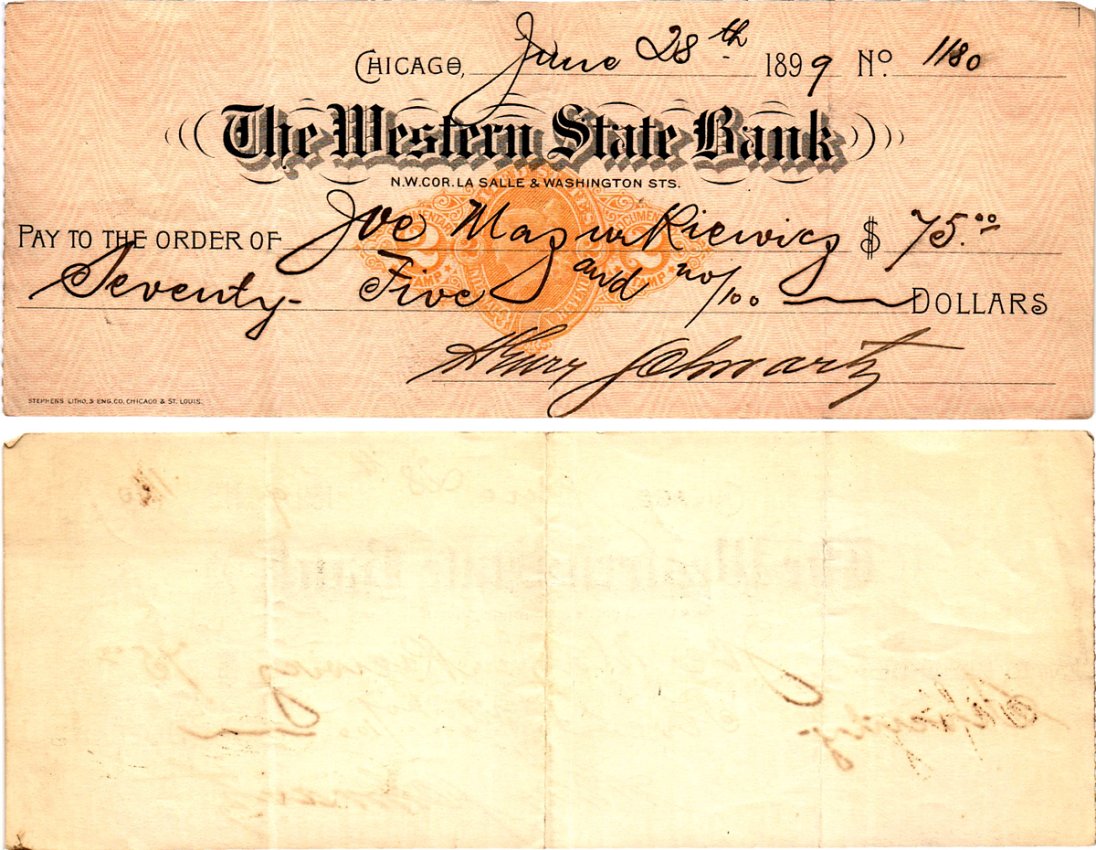 CHICAGO, June 28th 1899 No. 1180
The Western State Bank
N.W. COR. LA SALLE & WASHINGTON STS.
PAY TO THE ORDER OF Joe Mazurkiewicz $ 75.00
Seventy-Five and no/100 DOLLARS
Henry Schwartz
STEPHENS LITHO. & ENG. CO. CHICAGO & ST. LOUIS.